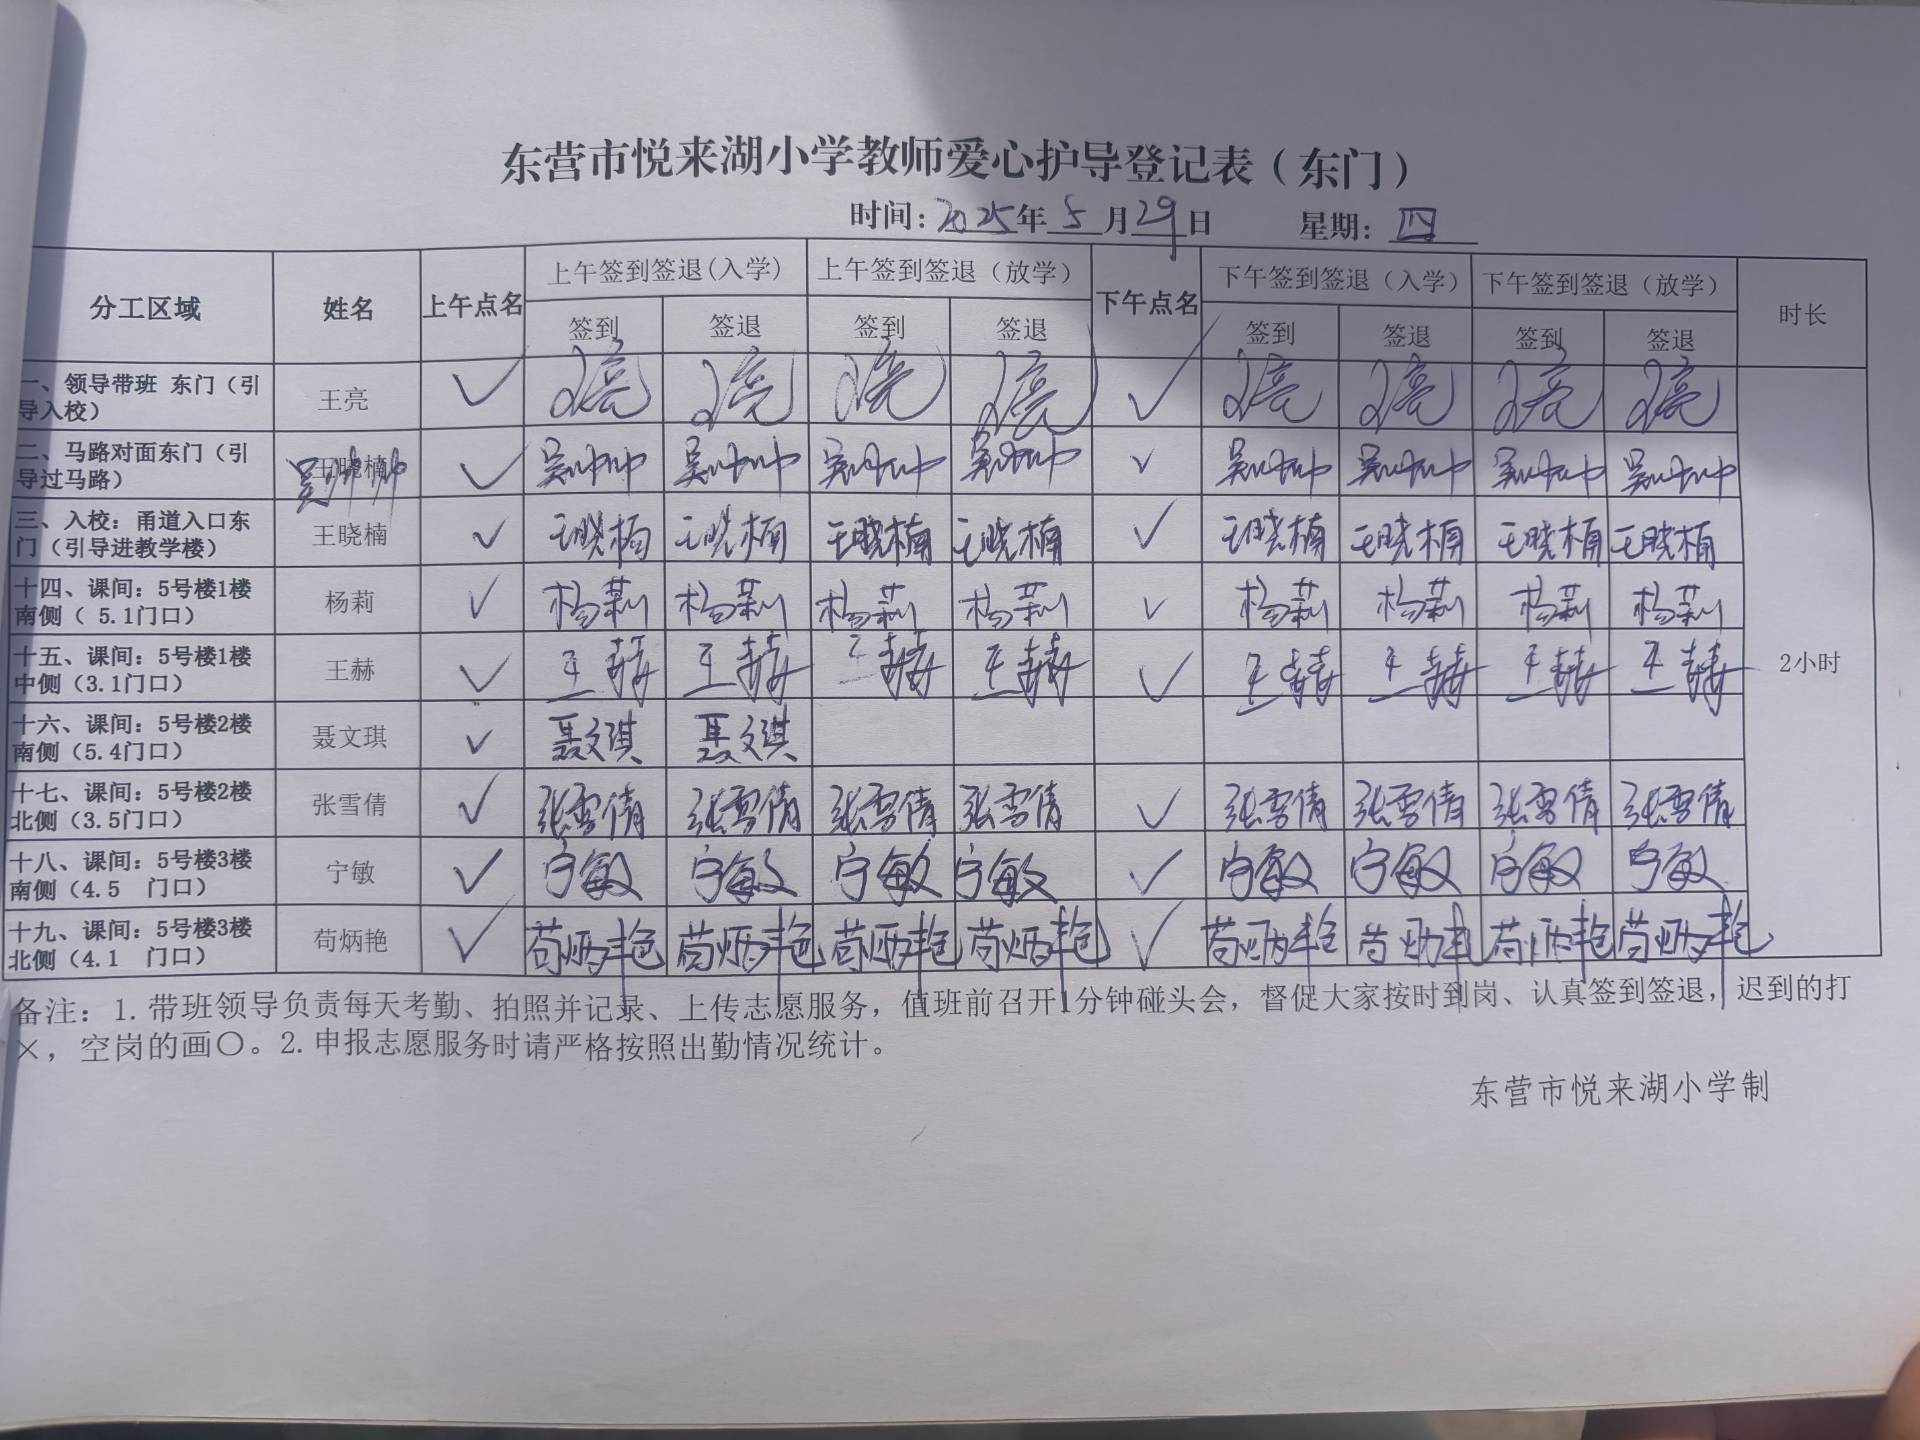 东营市悦来湖小学教师爱心护导登记表（东门）
时间：2025年5月29日 星期：四
分工区域 姓名 上午点名 上午签到签退(入学) 上午签到签退（放学） 下午点名 下午签到签退（入学） 下午签到签退（放学） 时长
签到 签退 签到 签退 签到 签退 签到 签退
一、领导带班 东门（引导入校） 王亮 ✓ 王亮 王亮 王亮 王亮 ✓ 王亮 王亮 王亮 王亮
二、马路对面东门（引导过马路） 王晓楠 吴帅帅 ✓ 吴帅帅 吴帅帅 吴帅帅 吴帅帅 ✓ 吴帅帅 吴帅帅 吴帅帅 吴帅帅
三、入校：甬道入口东门（引导进教学楼） 王晓楠 ✓ 王晓楠 王晓楠 王晓楠 王晓楠 ✓ 王晓楠 王晓楠 王晓楠 王晓楠
十四、课间：5号楼1楼南侧（ 5.1门口） 杨莉 ✓ 杨莉 杨莉 杨莉 杨莉 ✓ 杨莉 杨莉 杨莉 杨莉
十五、课间：5号楼1楼中侧（3.1门口） 王赫 ✓ 王赫 王赫 王赫 王赫 ✓ 王赫 王赫 王赫 王赫 2小时
十六、课间：5号楼2楼南侧（5.4门口） 聂文琪 ✓ 聂文琪 聂文琪
十七、课间：5号楼2楼北侧（3.5门口） 张雪倩 ✓ 张雪倩 张雪倩 张雪倩 张雪倩 ✓ 张雪倩 张雪倩 张雪倩 张雪倩
十八、课间：5号楼3楼南侧（4.5 门口） 宁敏 ✓ 宁敏 宁敏 宁敏 宁敏 ✓ 宁敏 宁敏 宁敏 宁敏
十九、课间：5号楼3楼北侧（4.1 门口） 苟炳艳 ✓ 苟炳艳 苟炳艳 苟炳艳 苟炳艳 ✓ 苟炳艳 苟炳艳 苟炳艳 苟炳艳
备注：1.带班领导负责每天考勤、拍照并记录、上传志愿服务，值班前召开1分钟碰头会，督促大家按时到岗、认真签到签退，迟到的打
×，空岗的画〇。2.申报志愿服务时请严格按照出勤情况统计。
东营市悦来湖小学制